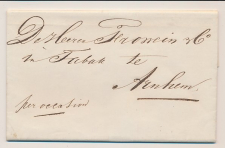 De Heeren Fromein & Co
in Tabak te
Arnhem
per occasion